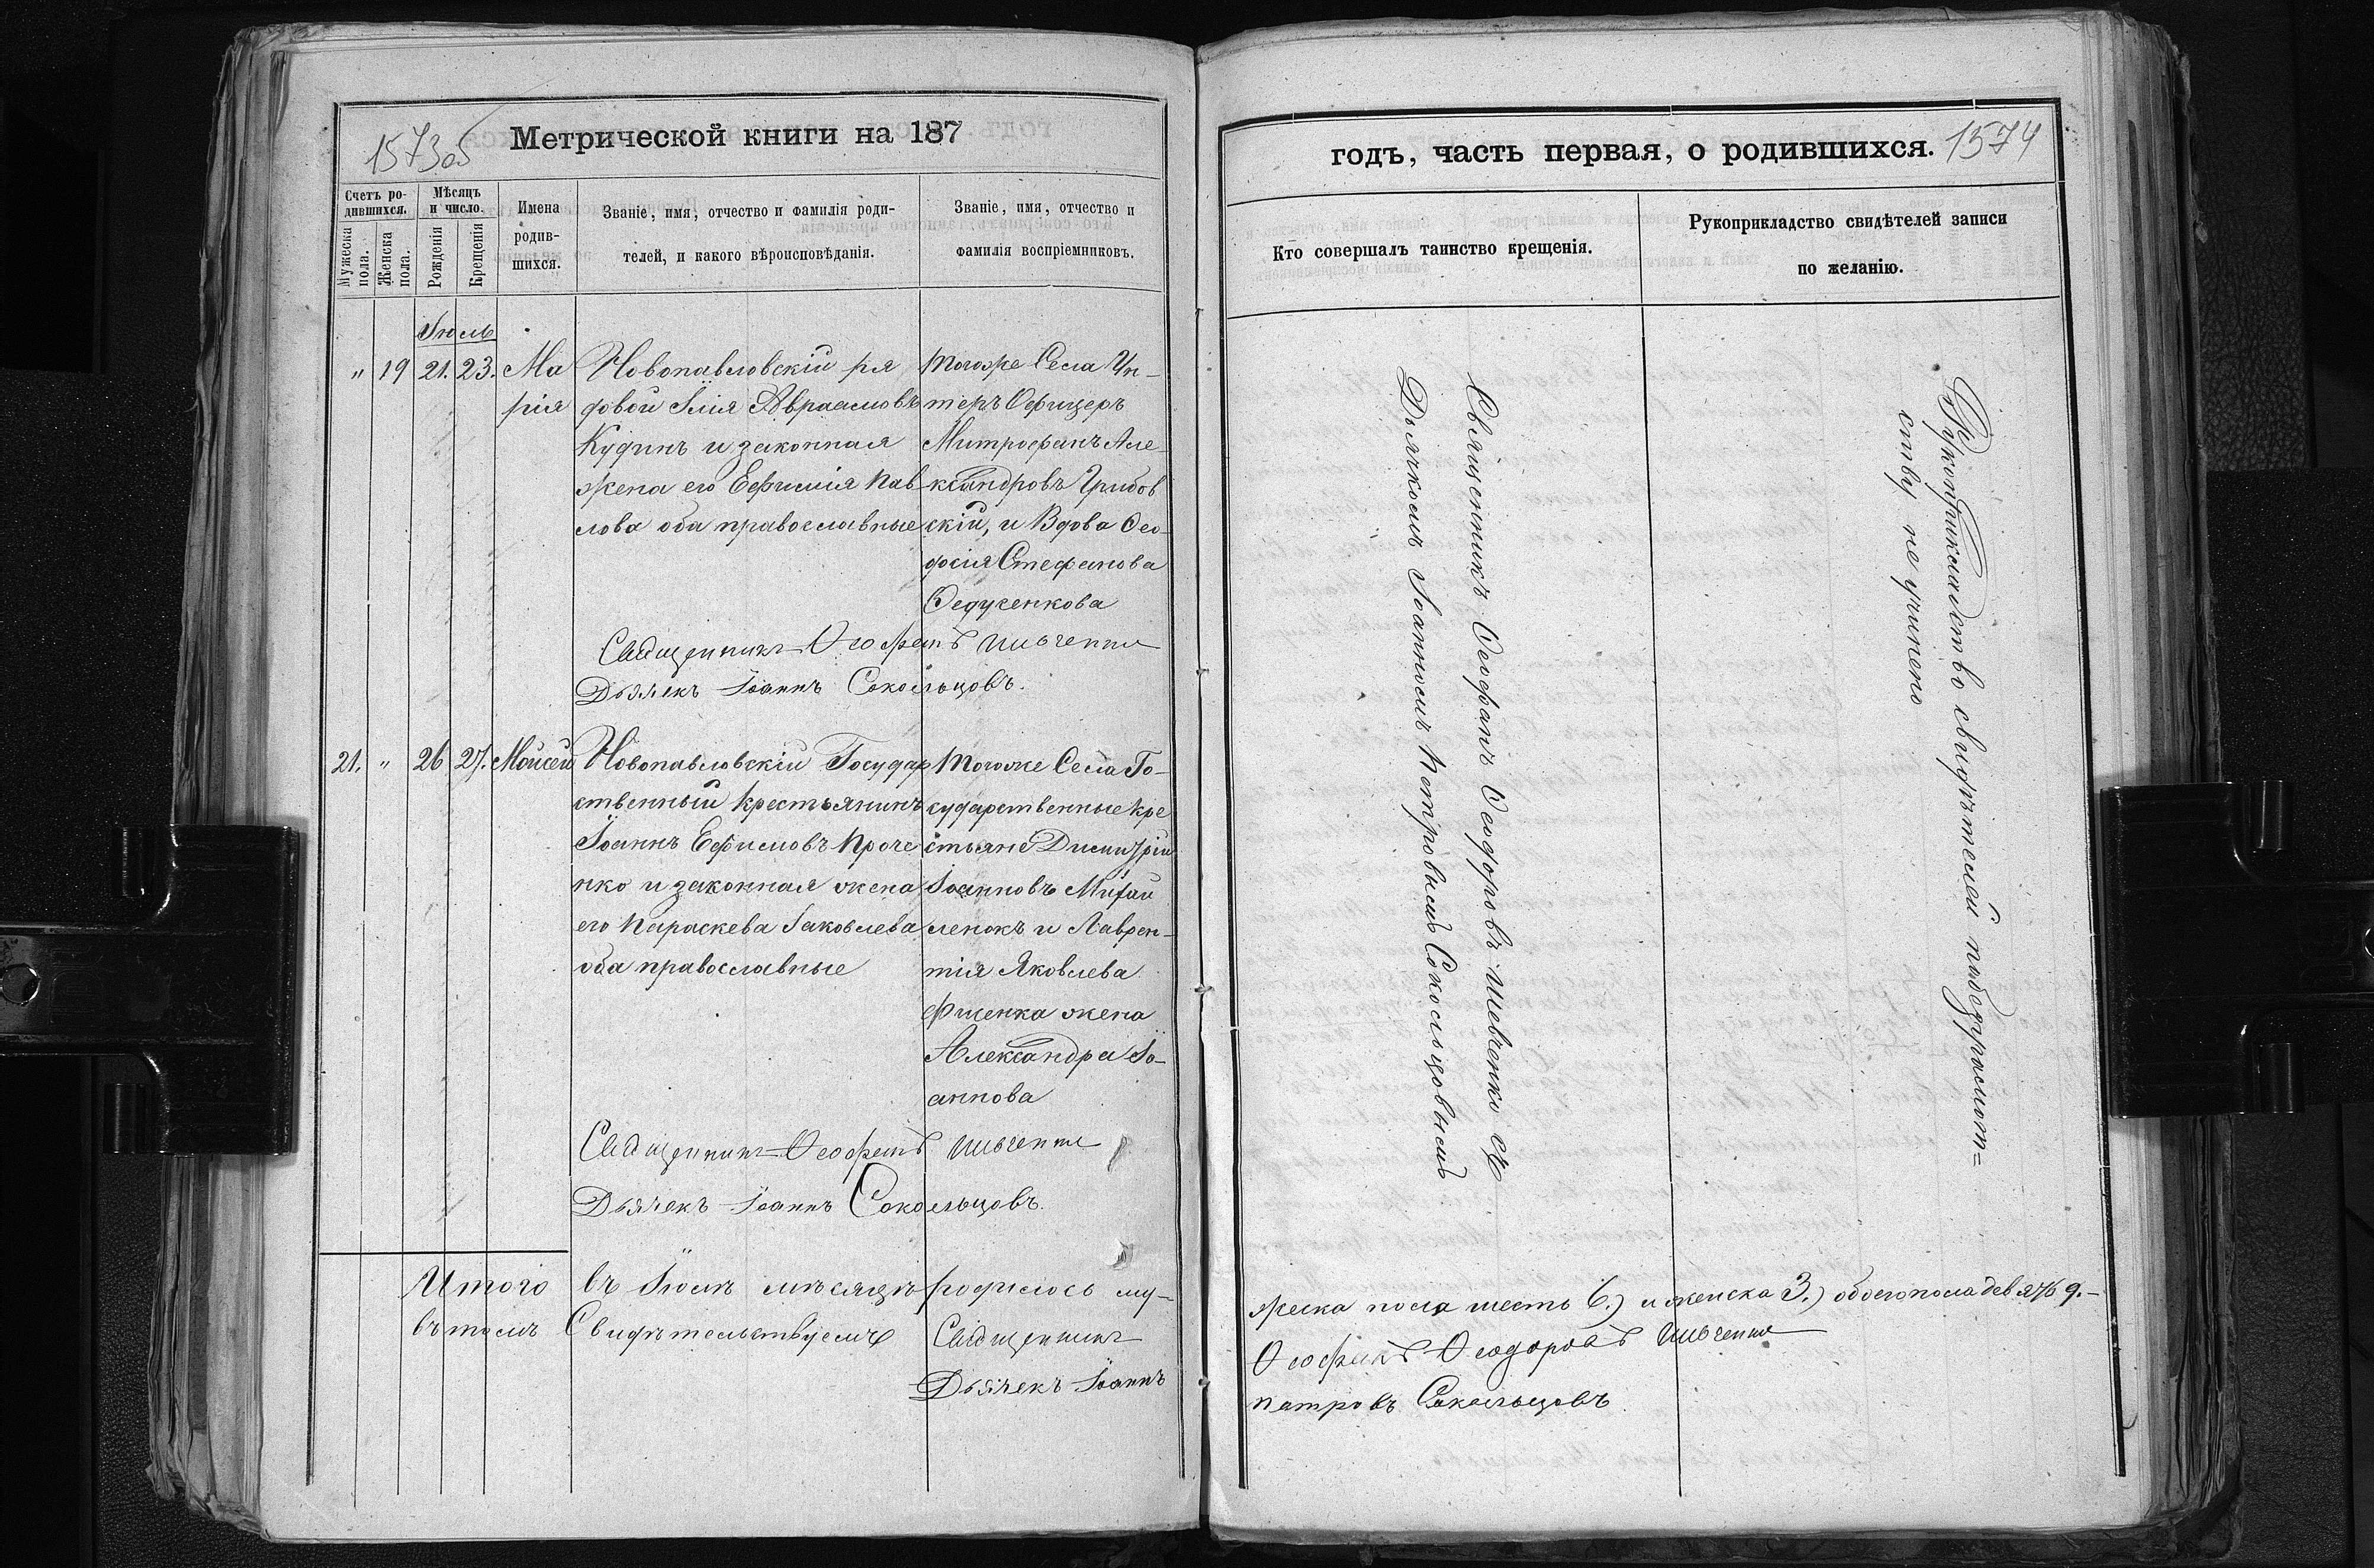 1573об
Метрической книги на 187
Счетъ ро-
дившихся.
Мѣсяцъ
и число.
Мужеска
пола.
Женска
пола.
Рожденія
Крещенія
Имена
родив-
шихся.
Званіе, имя, отчество и фамилія роди-
телей, и какого вѣроисповѣданія.
Званіе, имя, отчество и
фамилія воспріемниковъ.
Іюль
" 19 21. 23. Ма
рія
Новопавловскій ря
довой Илія Авраамовъ
Кудинъ и законная
жена его Ефимія Пав
лова оба православные
Тогоже Села Ун-
теръ Офицеръ
Митрофанъ Але
ксандровъ Грибов
скій, и Вдова Ѳео-
досія Стефанова
Ѳедученкова
Священникъ Ѳеофанъ Шевченко
Дьячекъ Іоаннъ Сокольцовъ.
21. " 26 27. Моисей
Новопавловскій Государ
ственный крестьянинъ
Іоаннъ Ефимовъ Проче
нко и законная жена
его Параскева Іаковлева
оба православные
Тогоже Села Го-
сударственные кре
стьяне Димитрій
Іоанновъ Михай
ленокъ и Лаврен-
тія Яковлева
Фисенка жена
Александра Іо-
аннова
Священникъ Ѳеофанъ Шевченко
Дьячекъ Іоаннъ Сокольцовъ.
Итого въ Іюлѣ мѣсяцѣ родилось му-
въ томъ Свидѣтельствуемъ Священникъ
Дьячекъ Іоаннъ
годъ, часть первая, о родившихся.
1574
Кто совершалъ таинство крещенія.
Рукоприкладство свидѣтелей записи
по желанію.
Священникъ Ѳеофанъ Ѳеодоровъ Шевченко съ
Дьячкомъ Іоанномъ Петровымъ Сокольцовымъ
Рукоприкладство свидѣтелей
ству не учинено
жеска пола шесть 6.) и женска 3.) обоего пола девять 9.-
Ѳеофанъ Ѳеодоровъ Шевченко
Петровъ Сокольцовъ